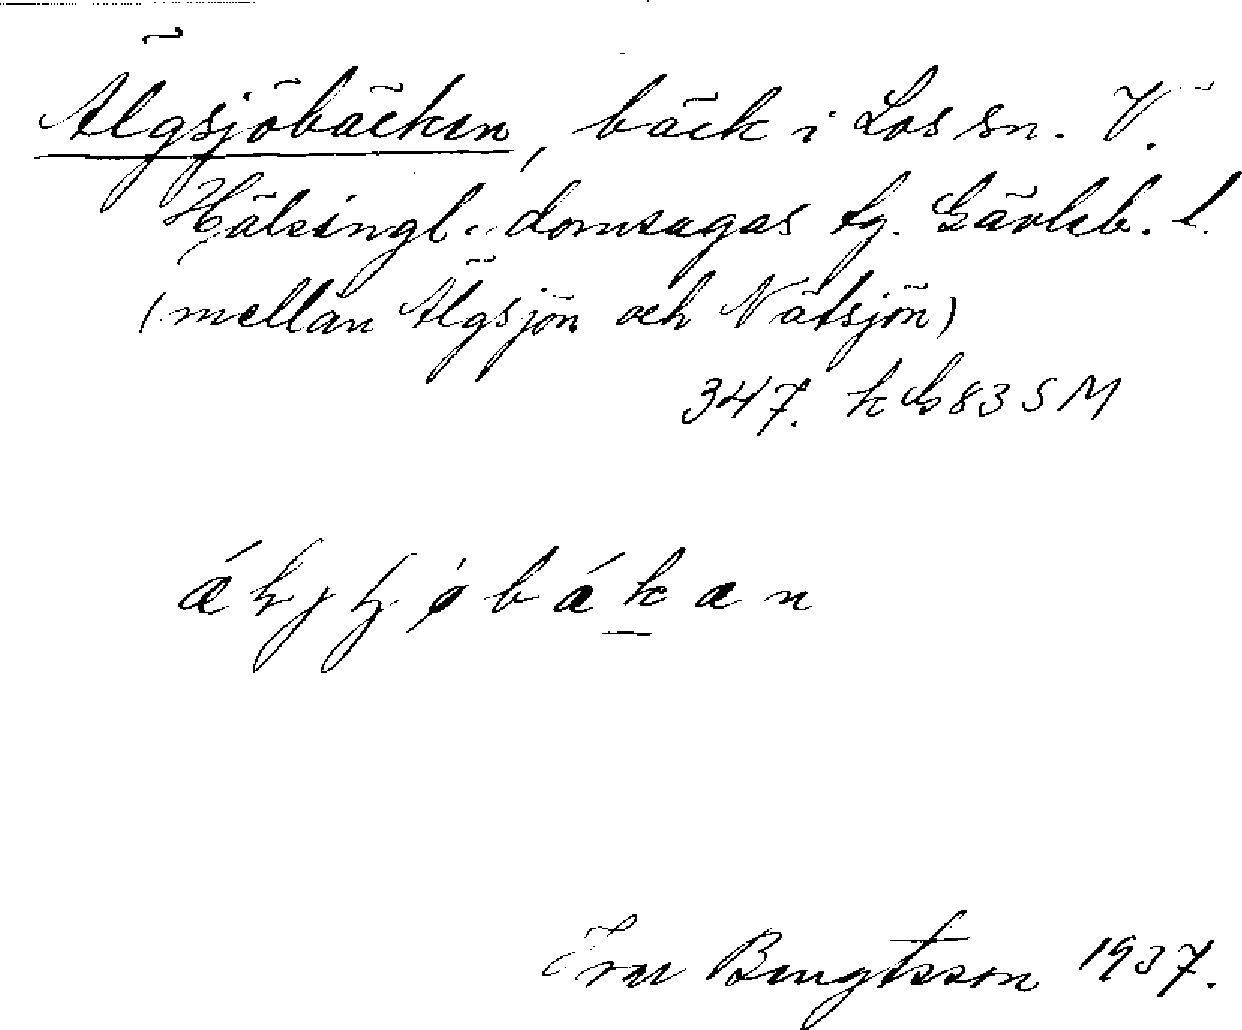 Älgsjöbäcken, bäck i Los sn. V.
Hälsingl. domsagas tg. Gävleb. l.
(mellan Älgsjön och Nätsjön)
347. k 83 S M
Ivar Bengtsson 1937.